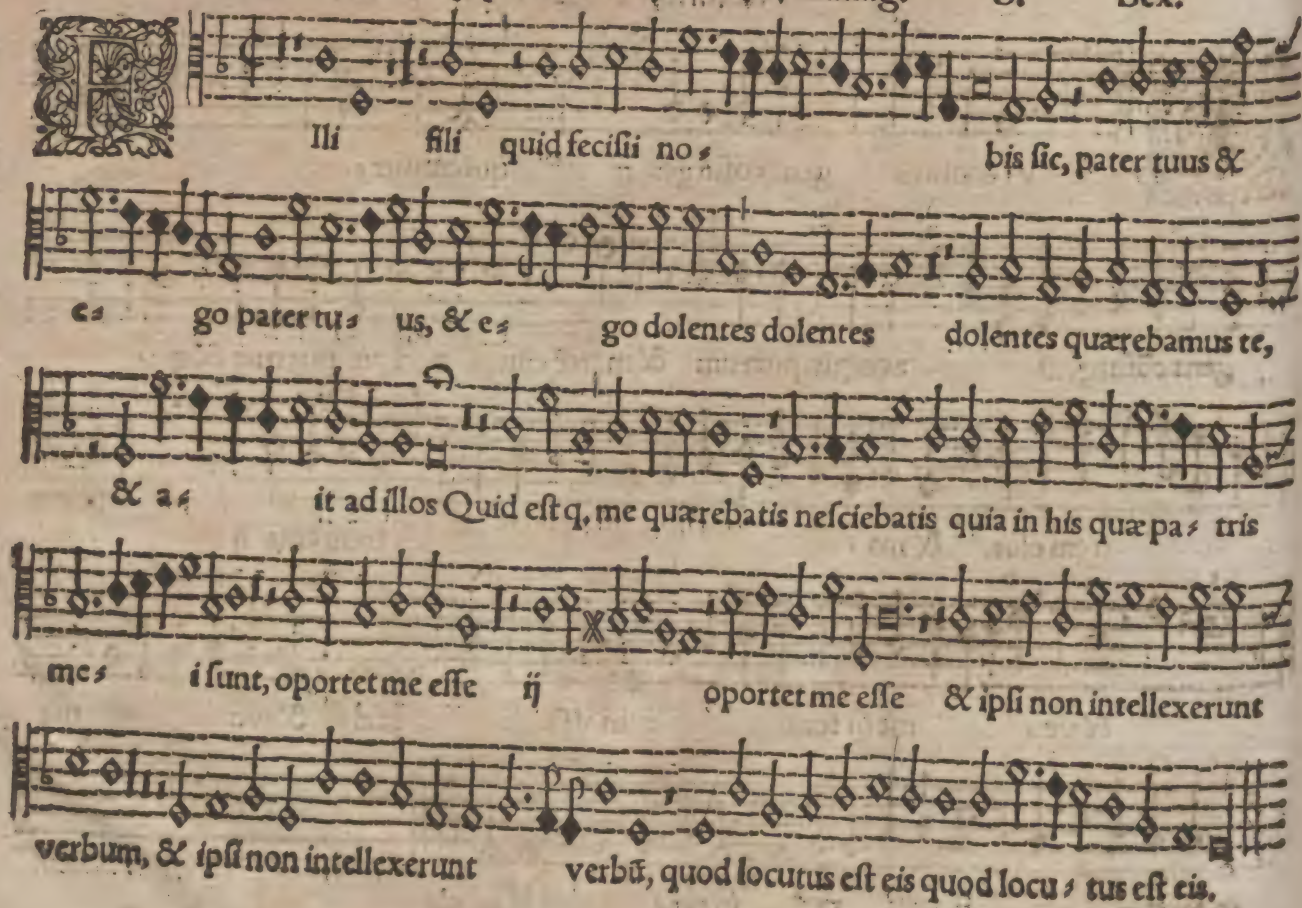 Sex.
F Ili fili quid fecisti no⸗ bis sic, pater tuus &
e⸗ go pater tu⸗ us, & e⸗ go dolentes dolentes dolentes quærebamus te,
& a⸗ it ad illos Quid est q, me quærebatis nesciebatis quia in his quæ pa⸗ tris
me⸗ i sunt, oportet me esse ij oportet me esse & ipsi non intellexerunt
verbum, & ipsi non intellexerunt verbū, quod locutus est eis quod locu⸗ tus est eis.